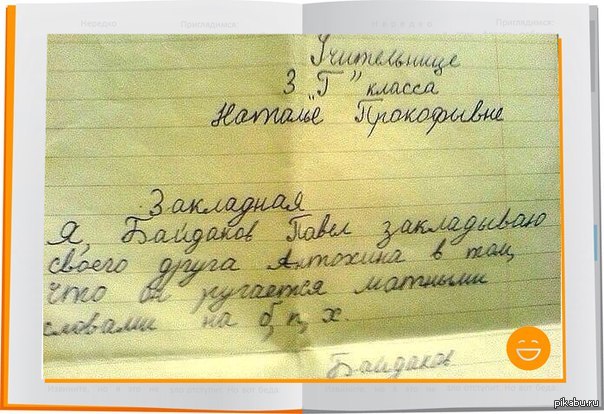 Нередко
Приглядимся:
Нередко
Приглядимся:
Учительнице
3 "Г" класса
Наталье Прокофьвне
Закладная
Я, Байдаков Павел закладываю
своего друга Антохина в том,
что он ругается матными
словами на б, п, х.
Байдаков
pikabu.ru